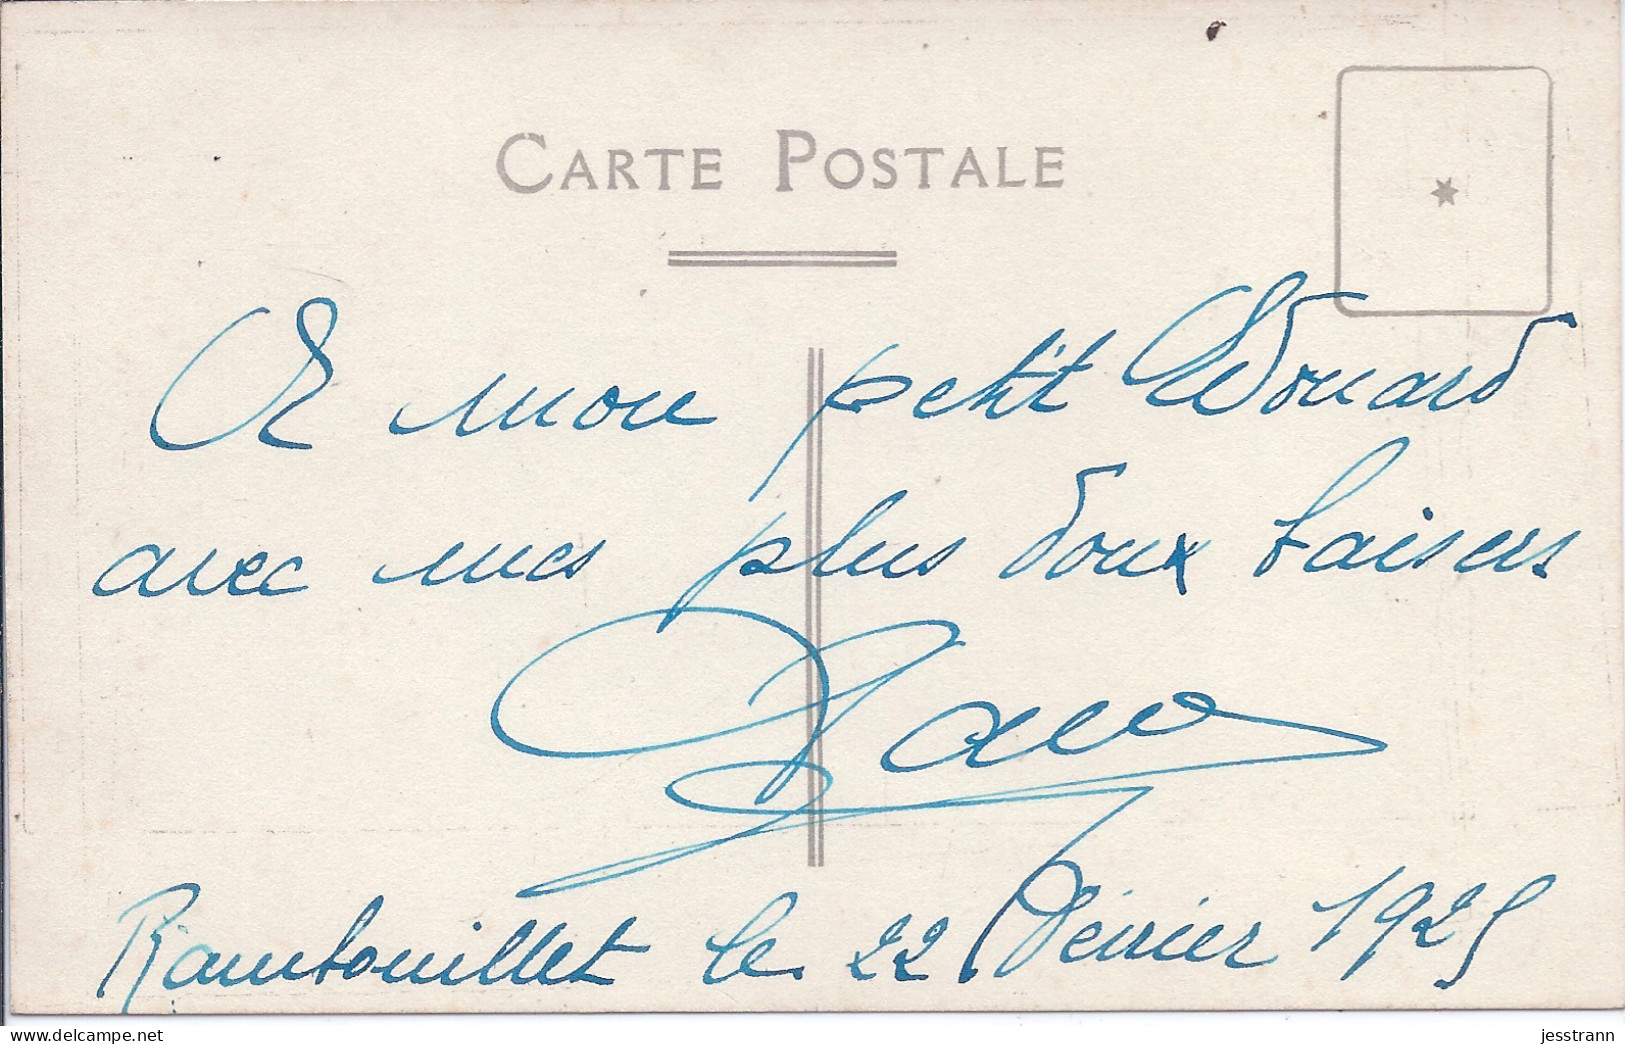 CARTE POSTALE
A mon petit Edouard
avec mes plus doux baisers
Rambouillet le 22 Février 1925
delcampe.net
jesstrann